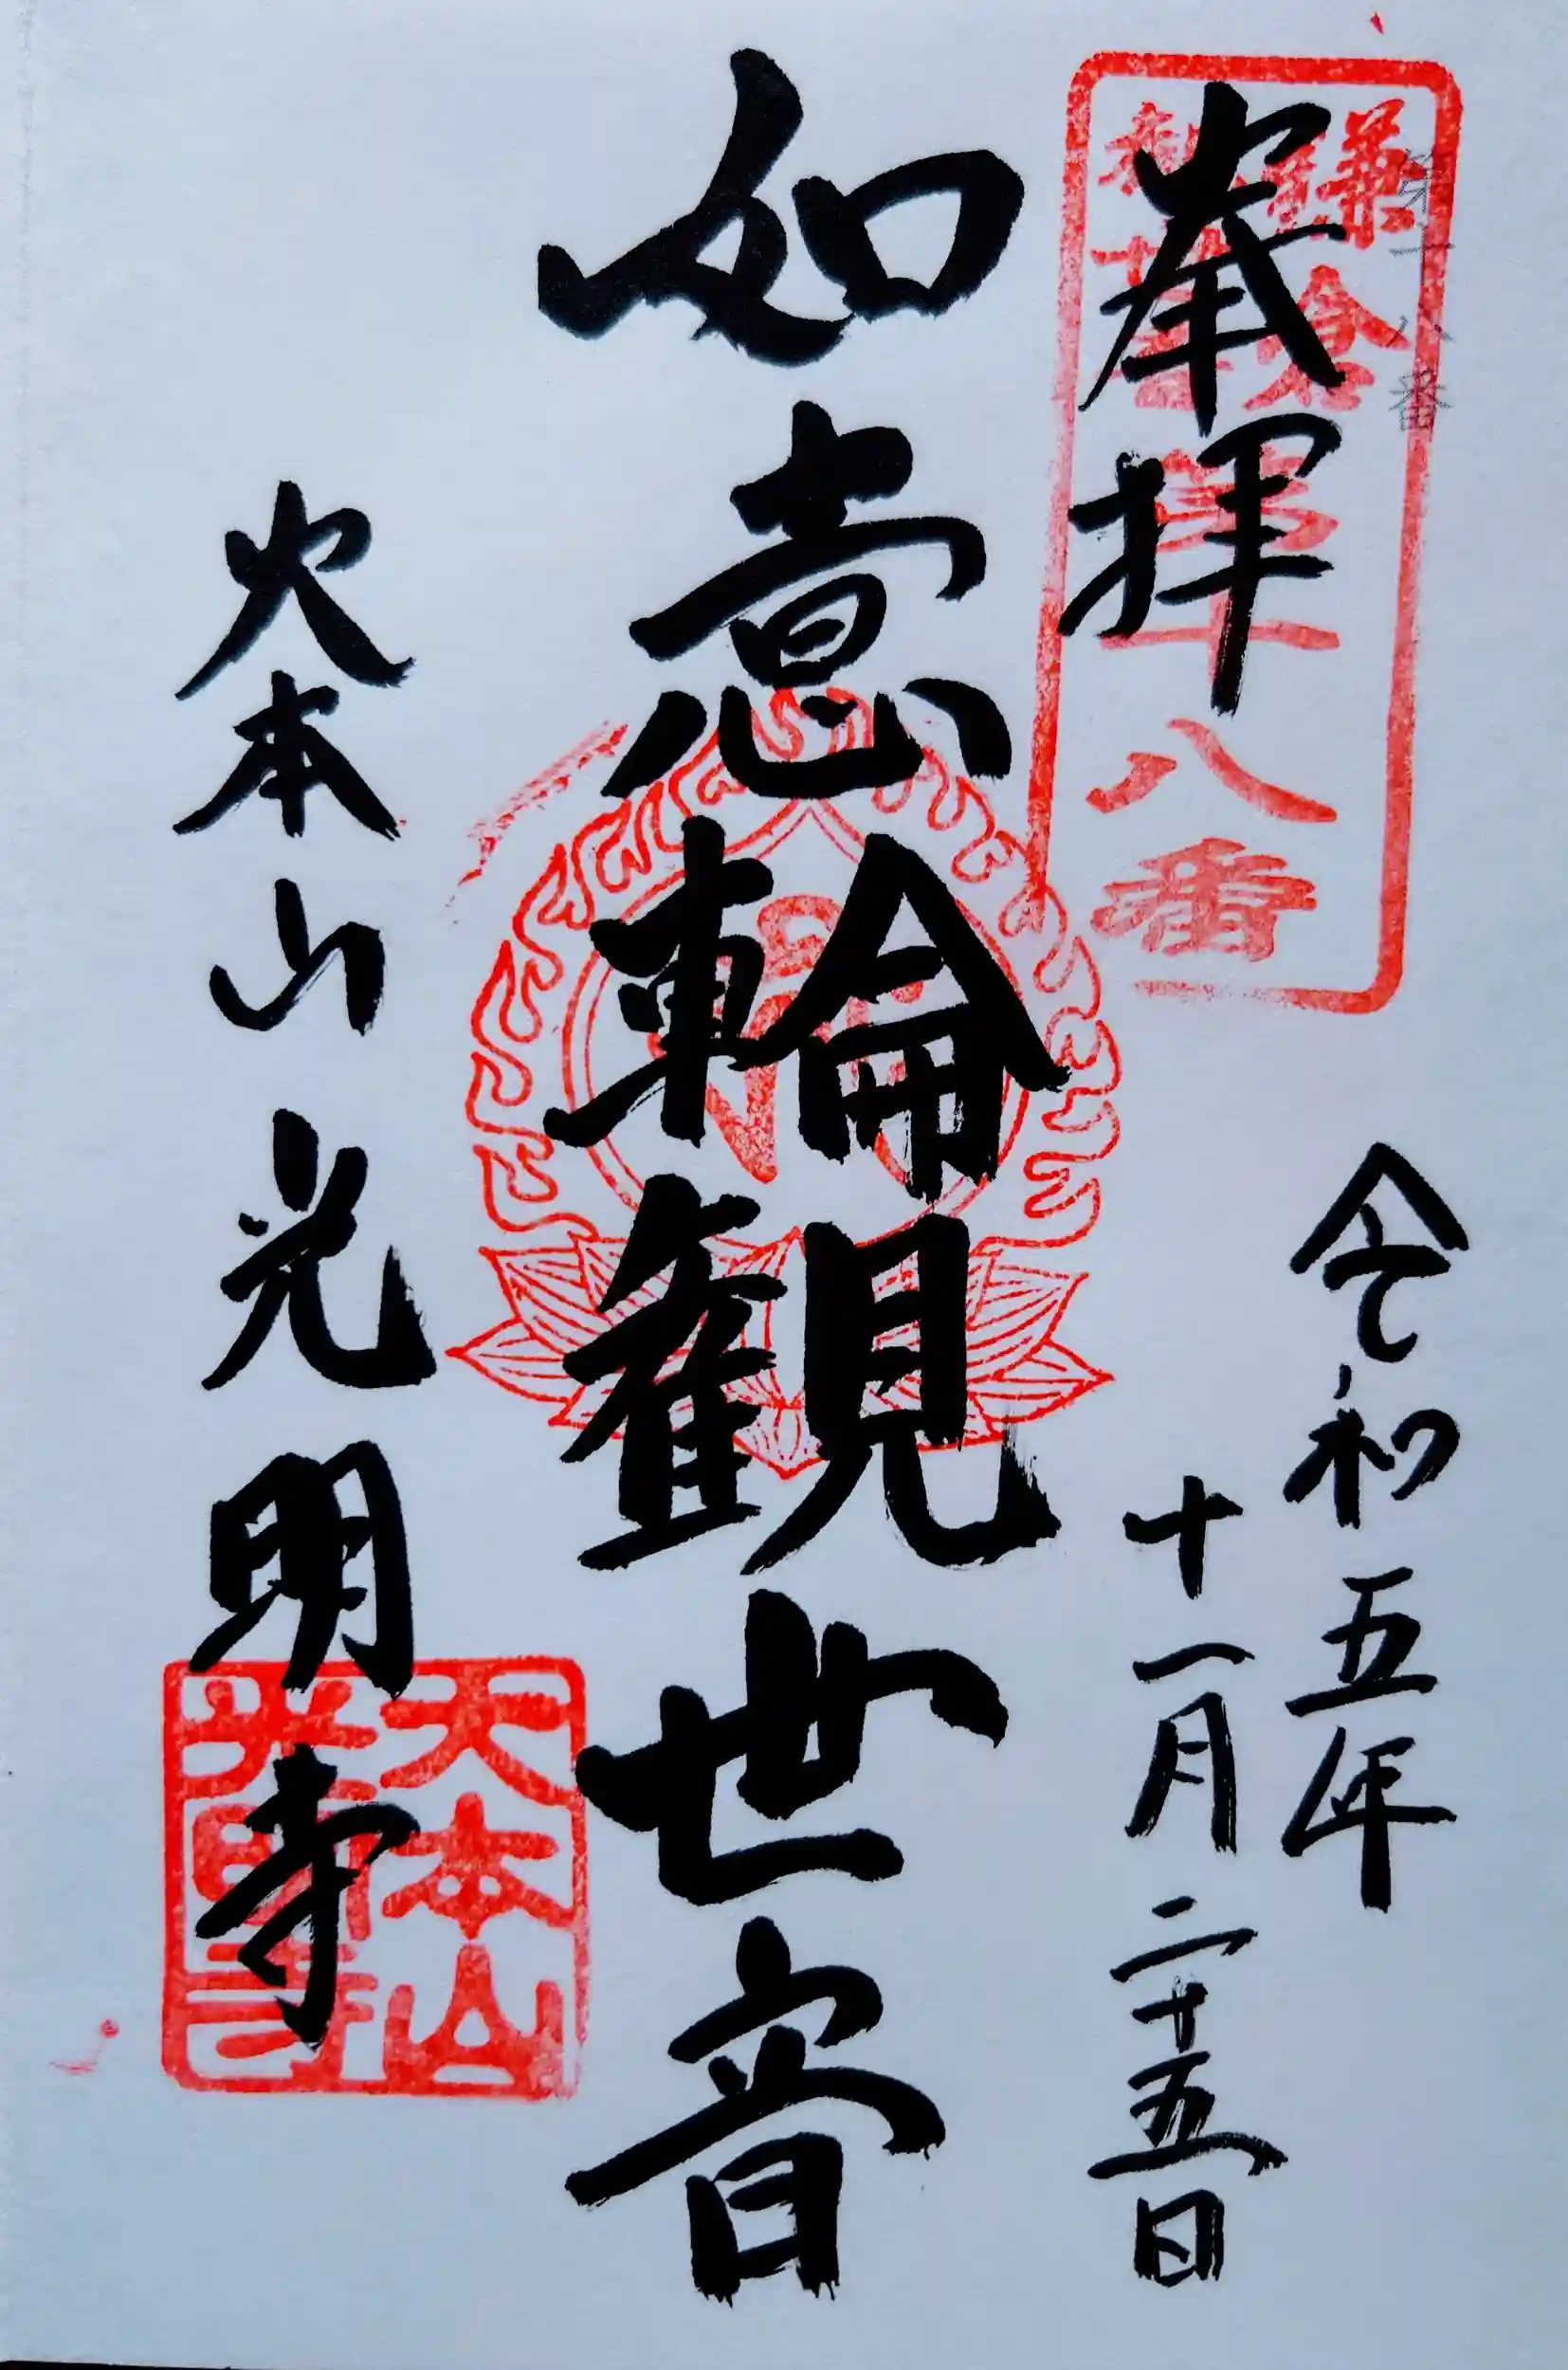 第十八番
奉拝
鎌倉
第十八番
令和五年
十一月二十五日
如意輪観世音
大本山光明寺
大本山
光明寺